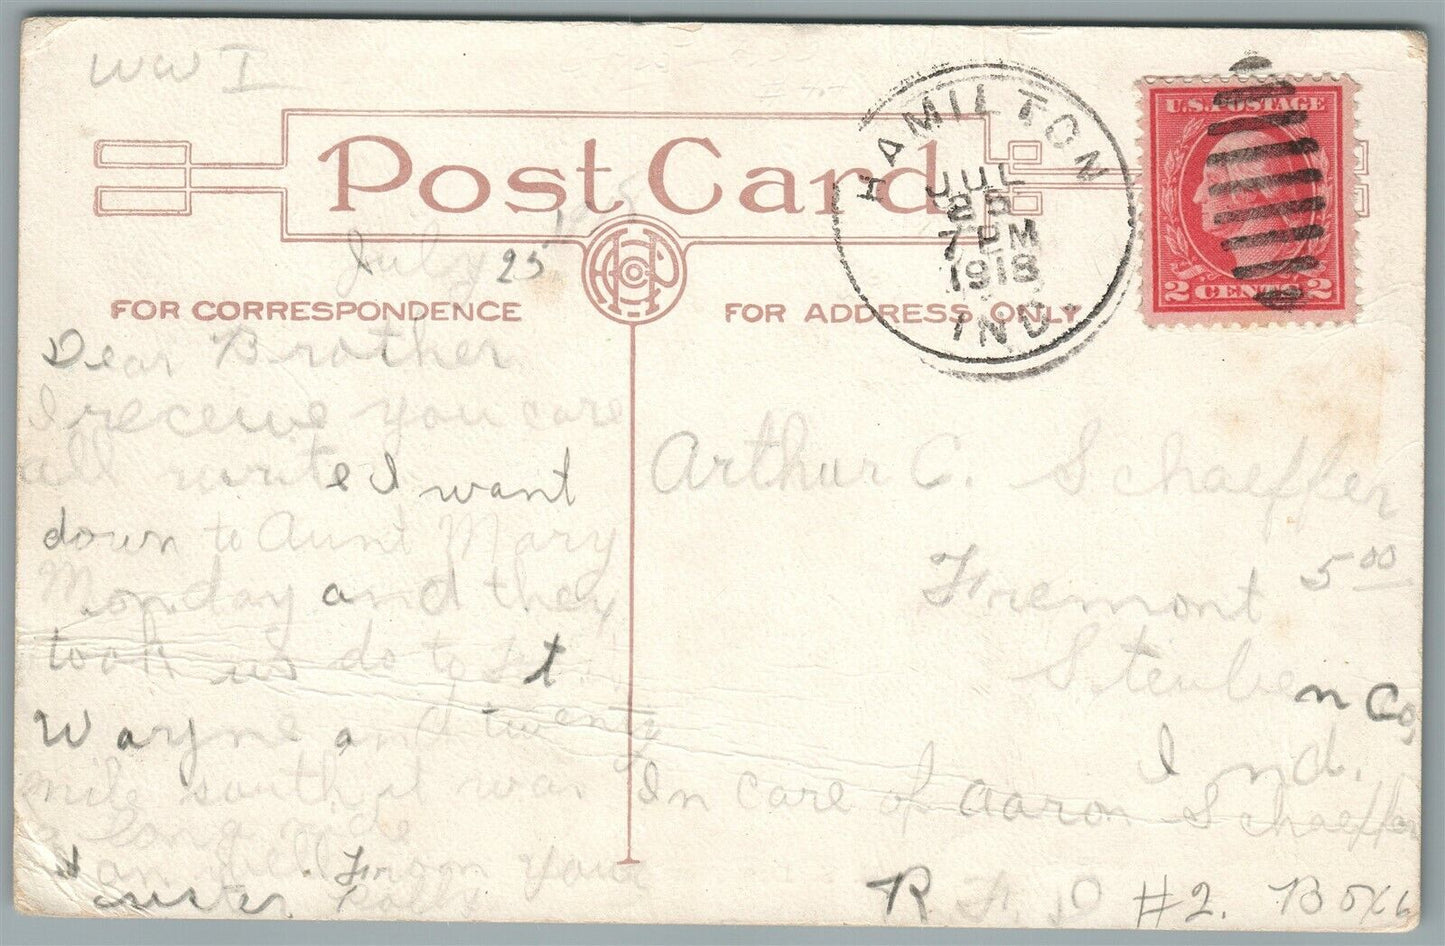 WW I
Post Card
HAMILTON
JUL
25
7 PM
1918
IND
U.S. POSTAGE
2 CENTS 2
July 25
FOR CORRESPONDENCE
FOR ADDRESS ONLY
Dear Brother
I receive you care
all write I want
down to Aunt Mary
Monday and they
took us do to Ft
Wayne and twenty
mile south it was
a long ride
I am well From your
sister
Arthur C. Schaeffer
Fremont
5 00
Steuben Co,
Ind.
In care of Aaron Schaeffer
R. F. D #2. Box 6